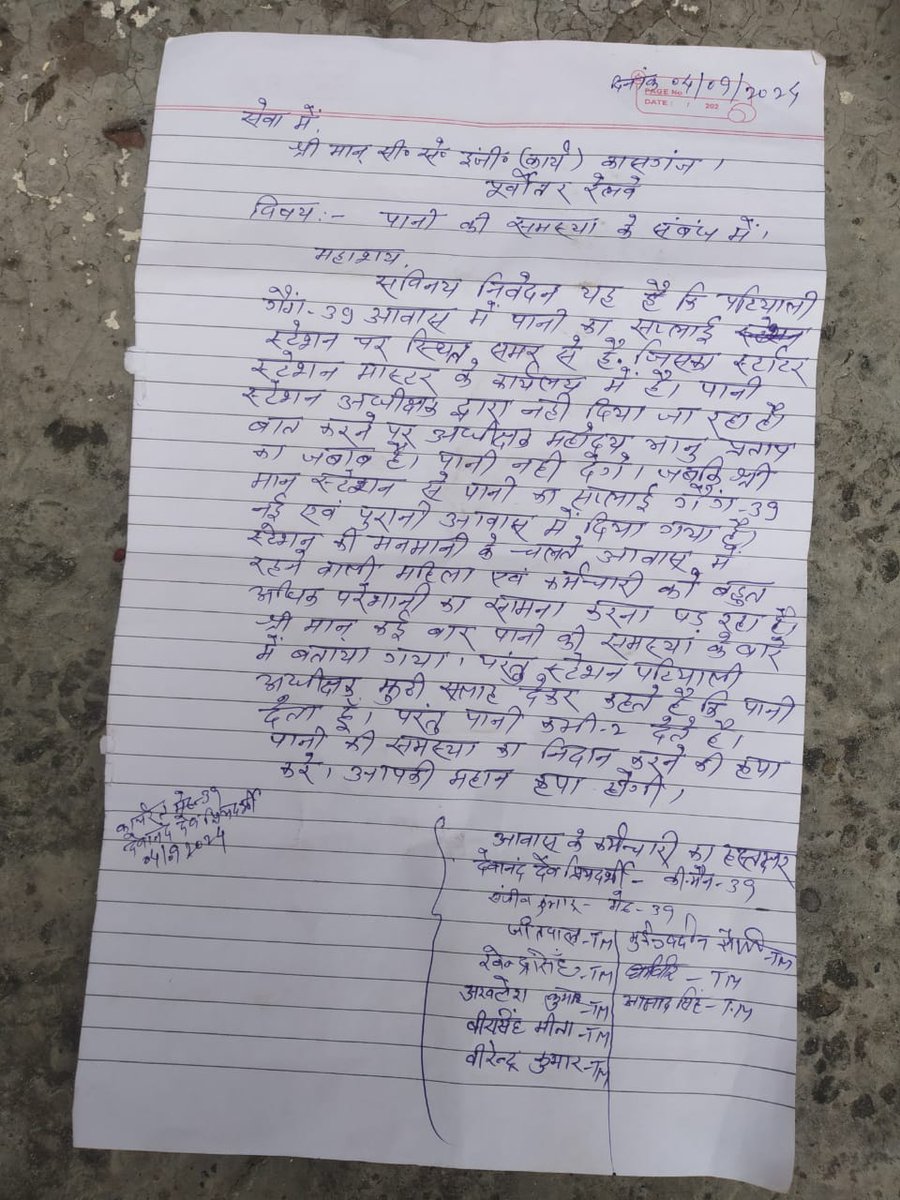 दिनांक 04/09/2024
PAGE No.
DATE: / 202
सेवा में,
श्री मान् सी० से० इंजी० (कार्य) कासगंज।
पूर्वोतर रेलवे
विषय:- पानी की समस्यां के संबंध में।
महाशय,
सविनय निवेदन यह है कि पटियाली
गैंग-39 आवास में पानी का सप्लाई
स्टेशन पर स्थित समर से है. जिसका स्टार्टर
स्टेशन मास्टर के कार्यलय में है। पानी
स्टेशन अधीक्षक द्वारा नही दिया जा रहा है।
बात करने पर अधीक्षक महोदय भानु प्रताप
का जबाब है। पानी नही देगें। जबकि श्री
मान् स्टेशन से पानी का सप्लाई गैंग-39
नई एवं पुरानी आवास में दिया गया है।
स्टेशन की मनमानी के चलते आवास में
रहने वाली महिला एवं कर्मचारी को बहुत
अधिक परेशानी का सामना करना पड़ रहा है।
श्री मान् कई बार पानी की समस्यां के बारे
में बताया गया। परंतु स्टेशन पटियाली
अधीक्षक झुठी सलाह देकर कहते है कि पानी
देता हूं। परंतु पानी कभी-2 देते है।
पानी की समस्या का निदान करने की कृपा
करे। आपकी महान कृपा होगी।
कार्यरत मेट-39
देवानंद देव प्रियदर्शी
04/9/2024
आवास के कर्मचारी का हस्ताक्षर
देवानंद देव प्रियदर्शी - की-मैन-39
संजीव कुमार - गेट-39
जीतपाल-TM
रवेन्द्रसिंह-TM
अखलेश कुमार-TM
वीरसिंह मीना-TM
वीरेन्द्र कुमार-TM
-TM
- TM
सिंह-T.M